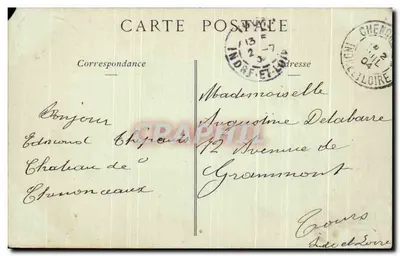 CARTE POSTALE
Correspondance
Adresse
INDRE-ET-LOIRE
CHENON
2
JUIL
04
INDRE-ET-LOIRE
Bonjour
Edmond
Chateau de
Chenonceaux
Mademoiselle
Augustine Delabarre
12 Avenue de
Grammont
Tours
Indre et Loire